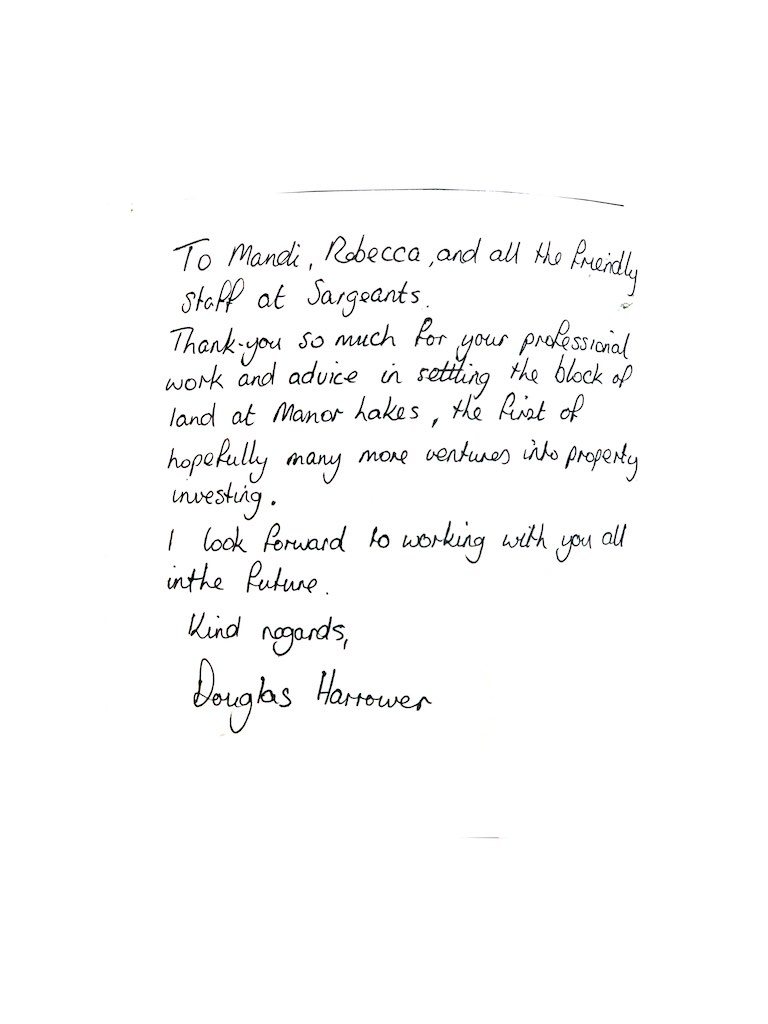 To Mandi, Rebecca, and all the friendly
staff at Sargeants.
Thank-you so much for your professional
work and advice in settling the block of
land at Manor Lakes, the first of
hopefully many more ventures into property
investing.
I look forward to working with you all
in the future.
Kind regards,
Douglas Harrower